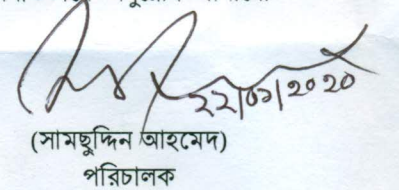 ২২/০১/২০২০
(সামছুদ্দিন আহমেদ)
পরিচালক